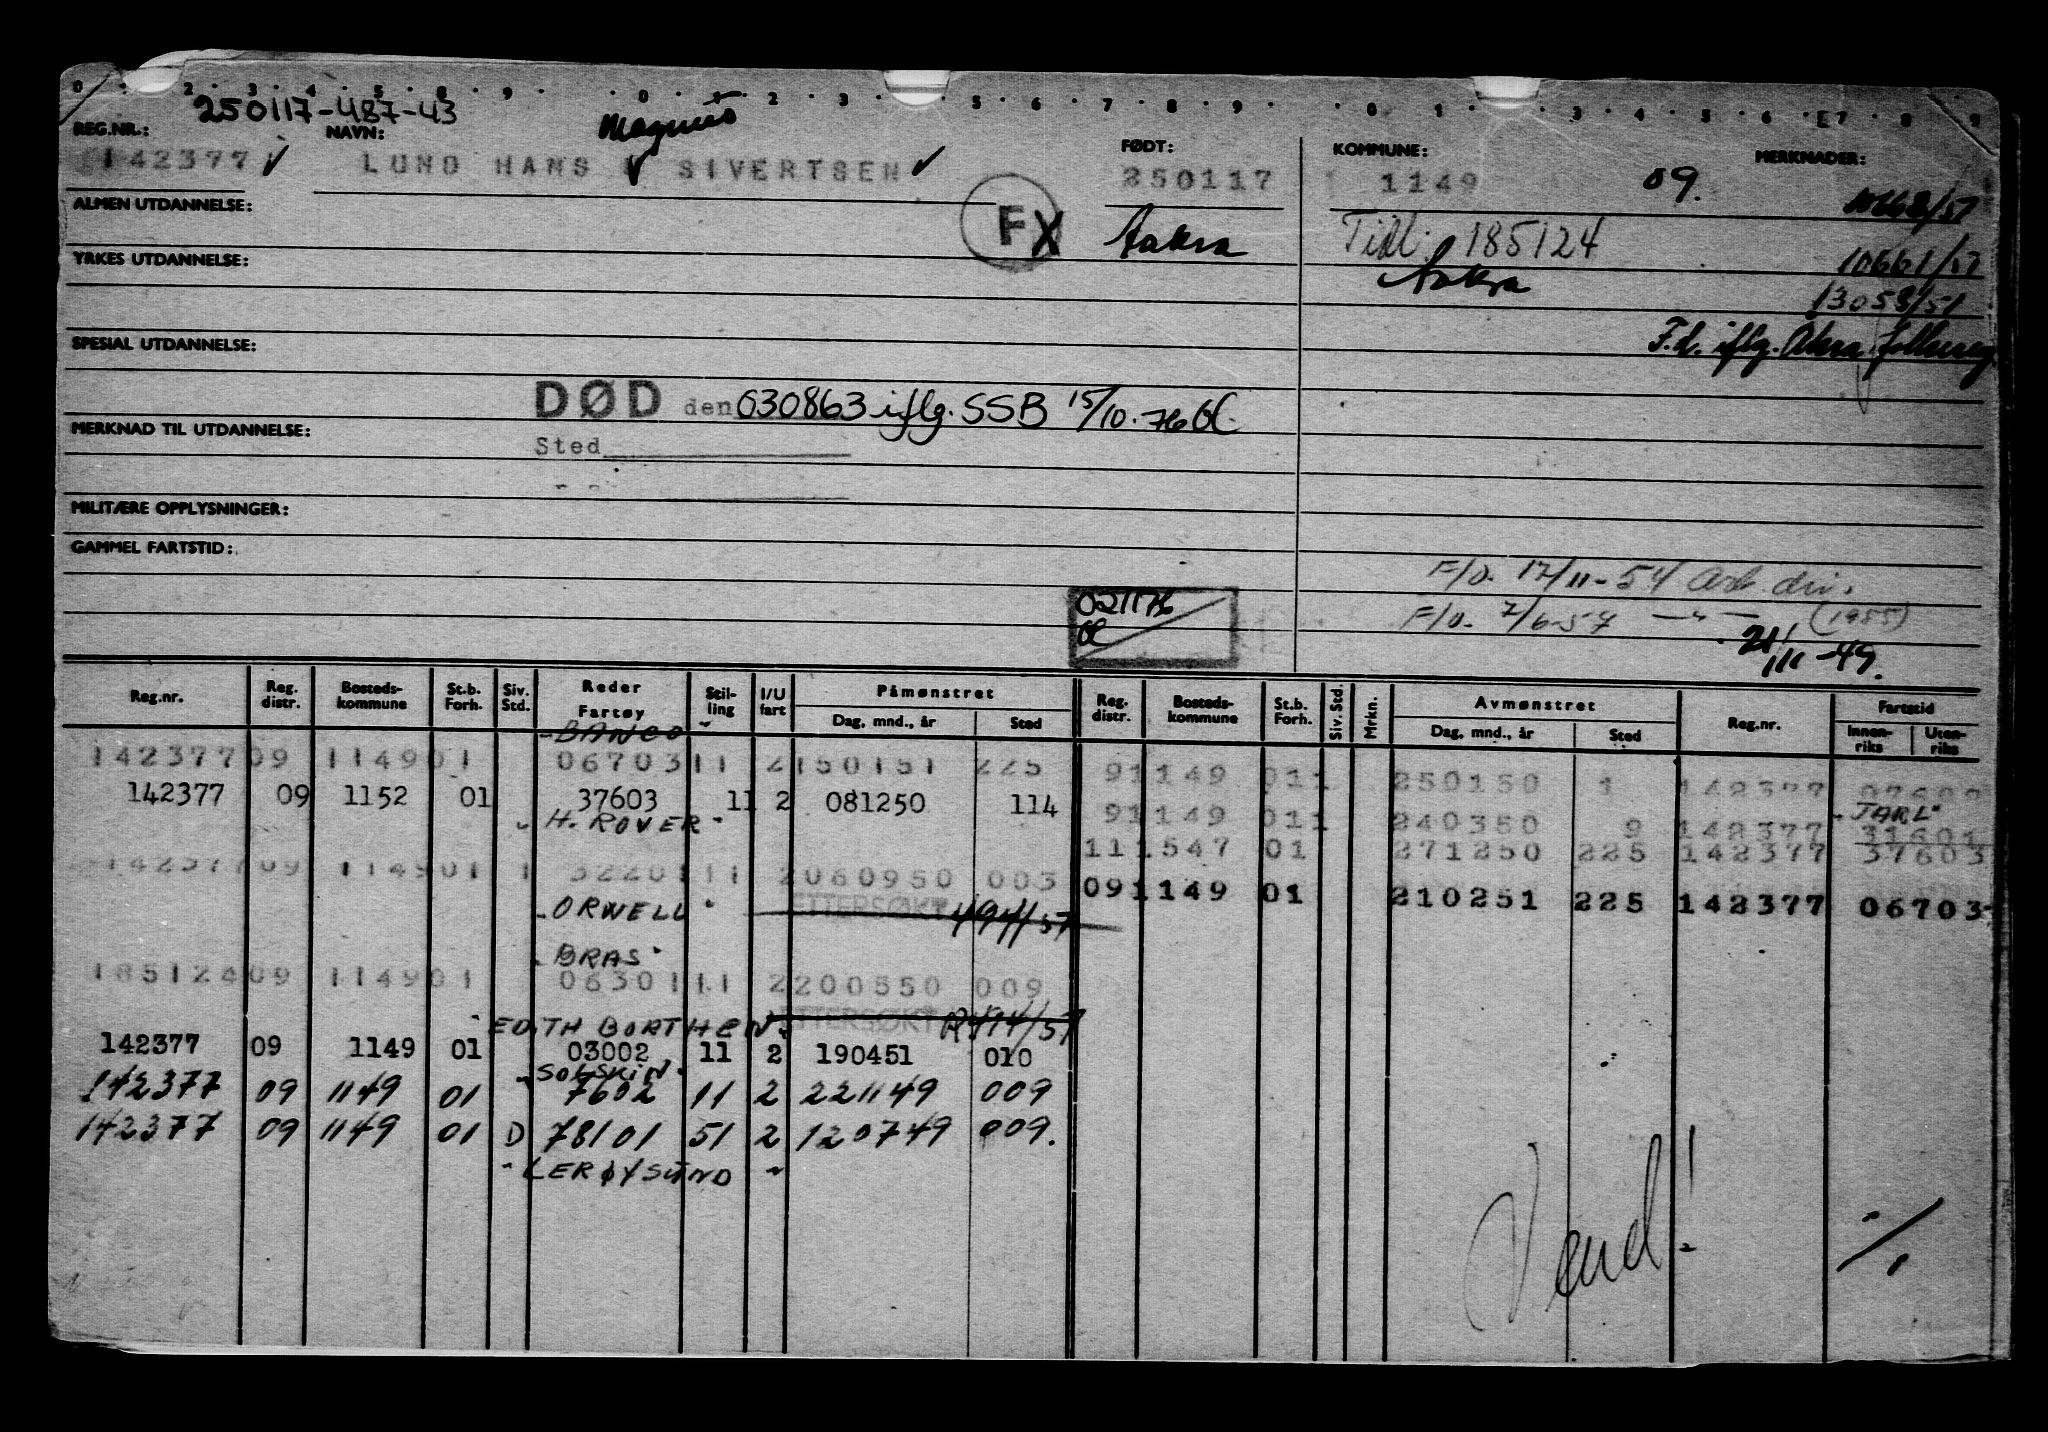 250117-487-43
REG.NR.: NAVN: Magnus FØDT: KOMMUNE: MERKNADER:
142377 LUND HANS SIVERTSEN 250117 1149 09.
ALMEN UTDANNELSE: FX Aakra Tidl: 185124
YRKES UTDANNELSE: Aakra 10661/57
13058/51
SPESIAL UTDANNELSE: F.d. iflg. Akra folkereg.
DØD den 030863 iflg. SSB 15/10.76
MERKNAD TIL UTDANNELSE:
Sted
MILITÆRE OPPLYSNINGER:
GAMMEL FARTSTID:
F/O. 17/11-54 Ark. div.
021176
F/O. 7/6-57 — " — (1955)
21/11-49.
Reg.nr. Reg. distr. Bosteds-kommune St.b. Forh. Siv. Std. Reder Fartøy Stil-ling I/U fart Påmønstret Dag, mnd., år Sted Reg. distr. Bosteds-kommune St.b. Forh. Siv. Std. Mrkn. Avmønstret Dag, mnd., år Sted Reg.nr. Fartstid Innen-riks Uten-riks
"BANCO"
142377 09 1149 01 06703 11 2 150151 225 9 1149 01 1 250150 1 142377
142377 09 1152 01 37603 11 2 081250 114
"JARL"
"H. ROVER" 9 1149 01 1 240350 9 142377 31601
11 1547 01 271250 225 142377 37603
142377 09 1149 01 1 32201 11 2 060950 003
09 1149 01 210251 225 142377 06703
"ORWELL" ETTERSØKT 494/57
"BRAS"
185124 09 1149 01 06301 11 2 200550 009
"EDITH BORTHEN" ETTERSØKT 494/57
142377 09 1149 01 03002 11 2 190451 010
"SOLSKIN"
142377 09 1149 01 7602 11 2 221149 009
142377 09 1149 01 D 78101 51 2 120749 009.
"LERØYSUND"
Vend!